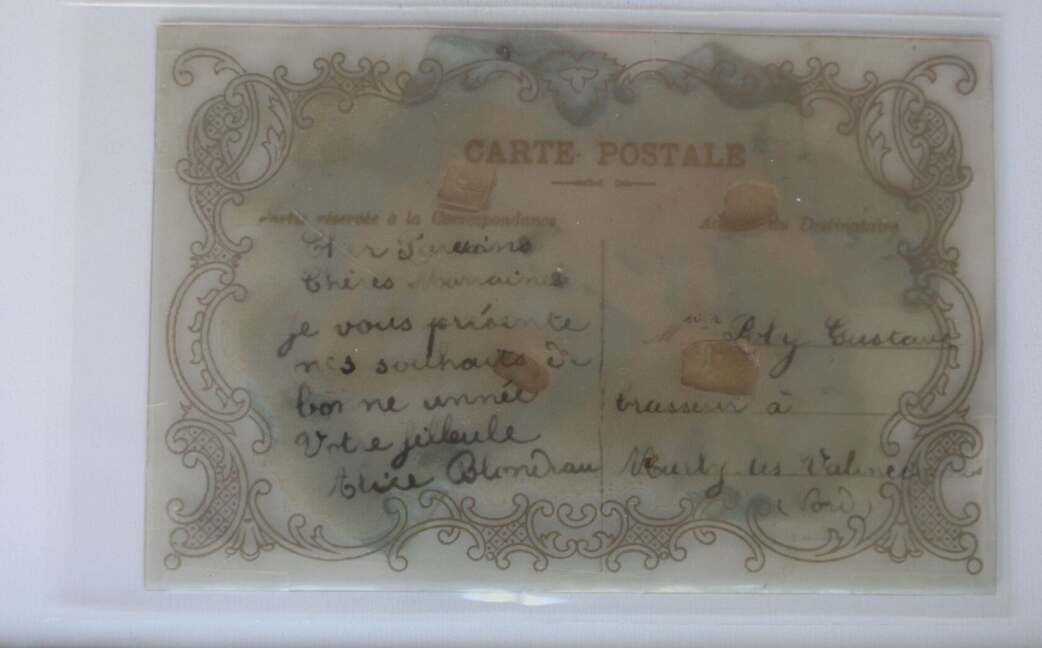 CARTE POSTALE
Partie réservée à la Correspondance
Adresse du Destinataire
Cher Parrains
Chères Marraines
je vous présente
mes souhaits de
bonne année
Votre filleule
Alice Blondeau
Gustave
brasseur à
Marly les Valenciennes
(Nord)